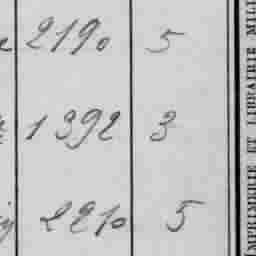 2190 5
1392 3
2210 5
IMPRIMERIE ET LIBRAIRIE MIL